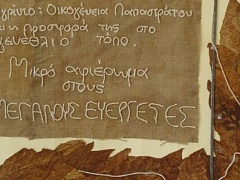 γρίνιο: Οικογένεια Παπαστράτου
η Προσφορά της στο
γενέθλιο τόπο.
Μικρό αφιέρωμα
στους
ΜΕΓΑΛΟΥΣ ΕΥΕΡΓΕΤΕΣ